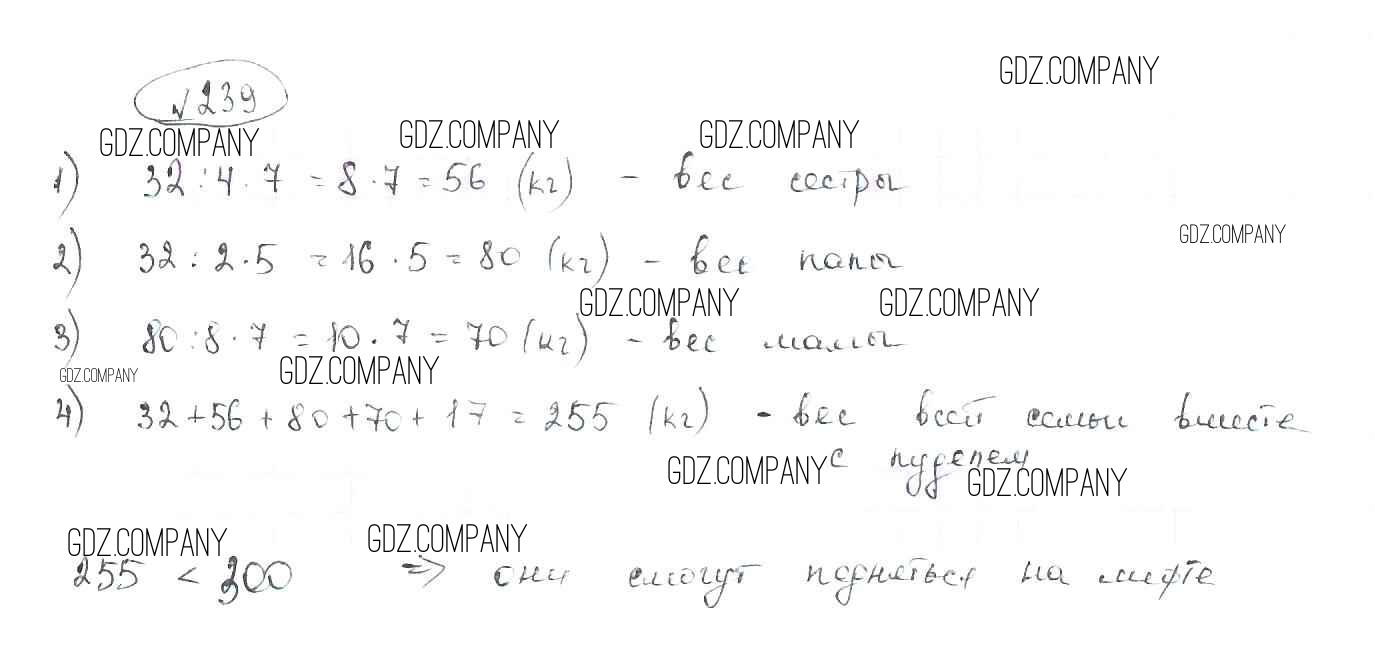 GDZ.COMPANY
№239
GDZ.COMPANY GDZ.COMPANY GDZ.COMPANY
1) 32 : 4 · 7 = 8 · 7 = 56 (кг) - вес сестры
GDZ.COMPANY
2) 32 : 2 · 5 = 16 · 5 = 80 (кг) - вес папы
GDZ.COMPANY GDZ.COMPANY
3) 80 : 8 · 7 = 10 · 7 = 70 (кг) - вес мамы
GDZ.COMPANY GDZ.COMPANY
4) 32 + 56 + 80 + 70 + 17 = 255 (кг) - вес всей семьи вместе
с пуделем
GDZ.COMPANY GDZ.COMPANY
GDZ.COMPANY GDZ.COMPANY
255 < 300 => они смогут подняться на лифте